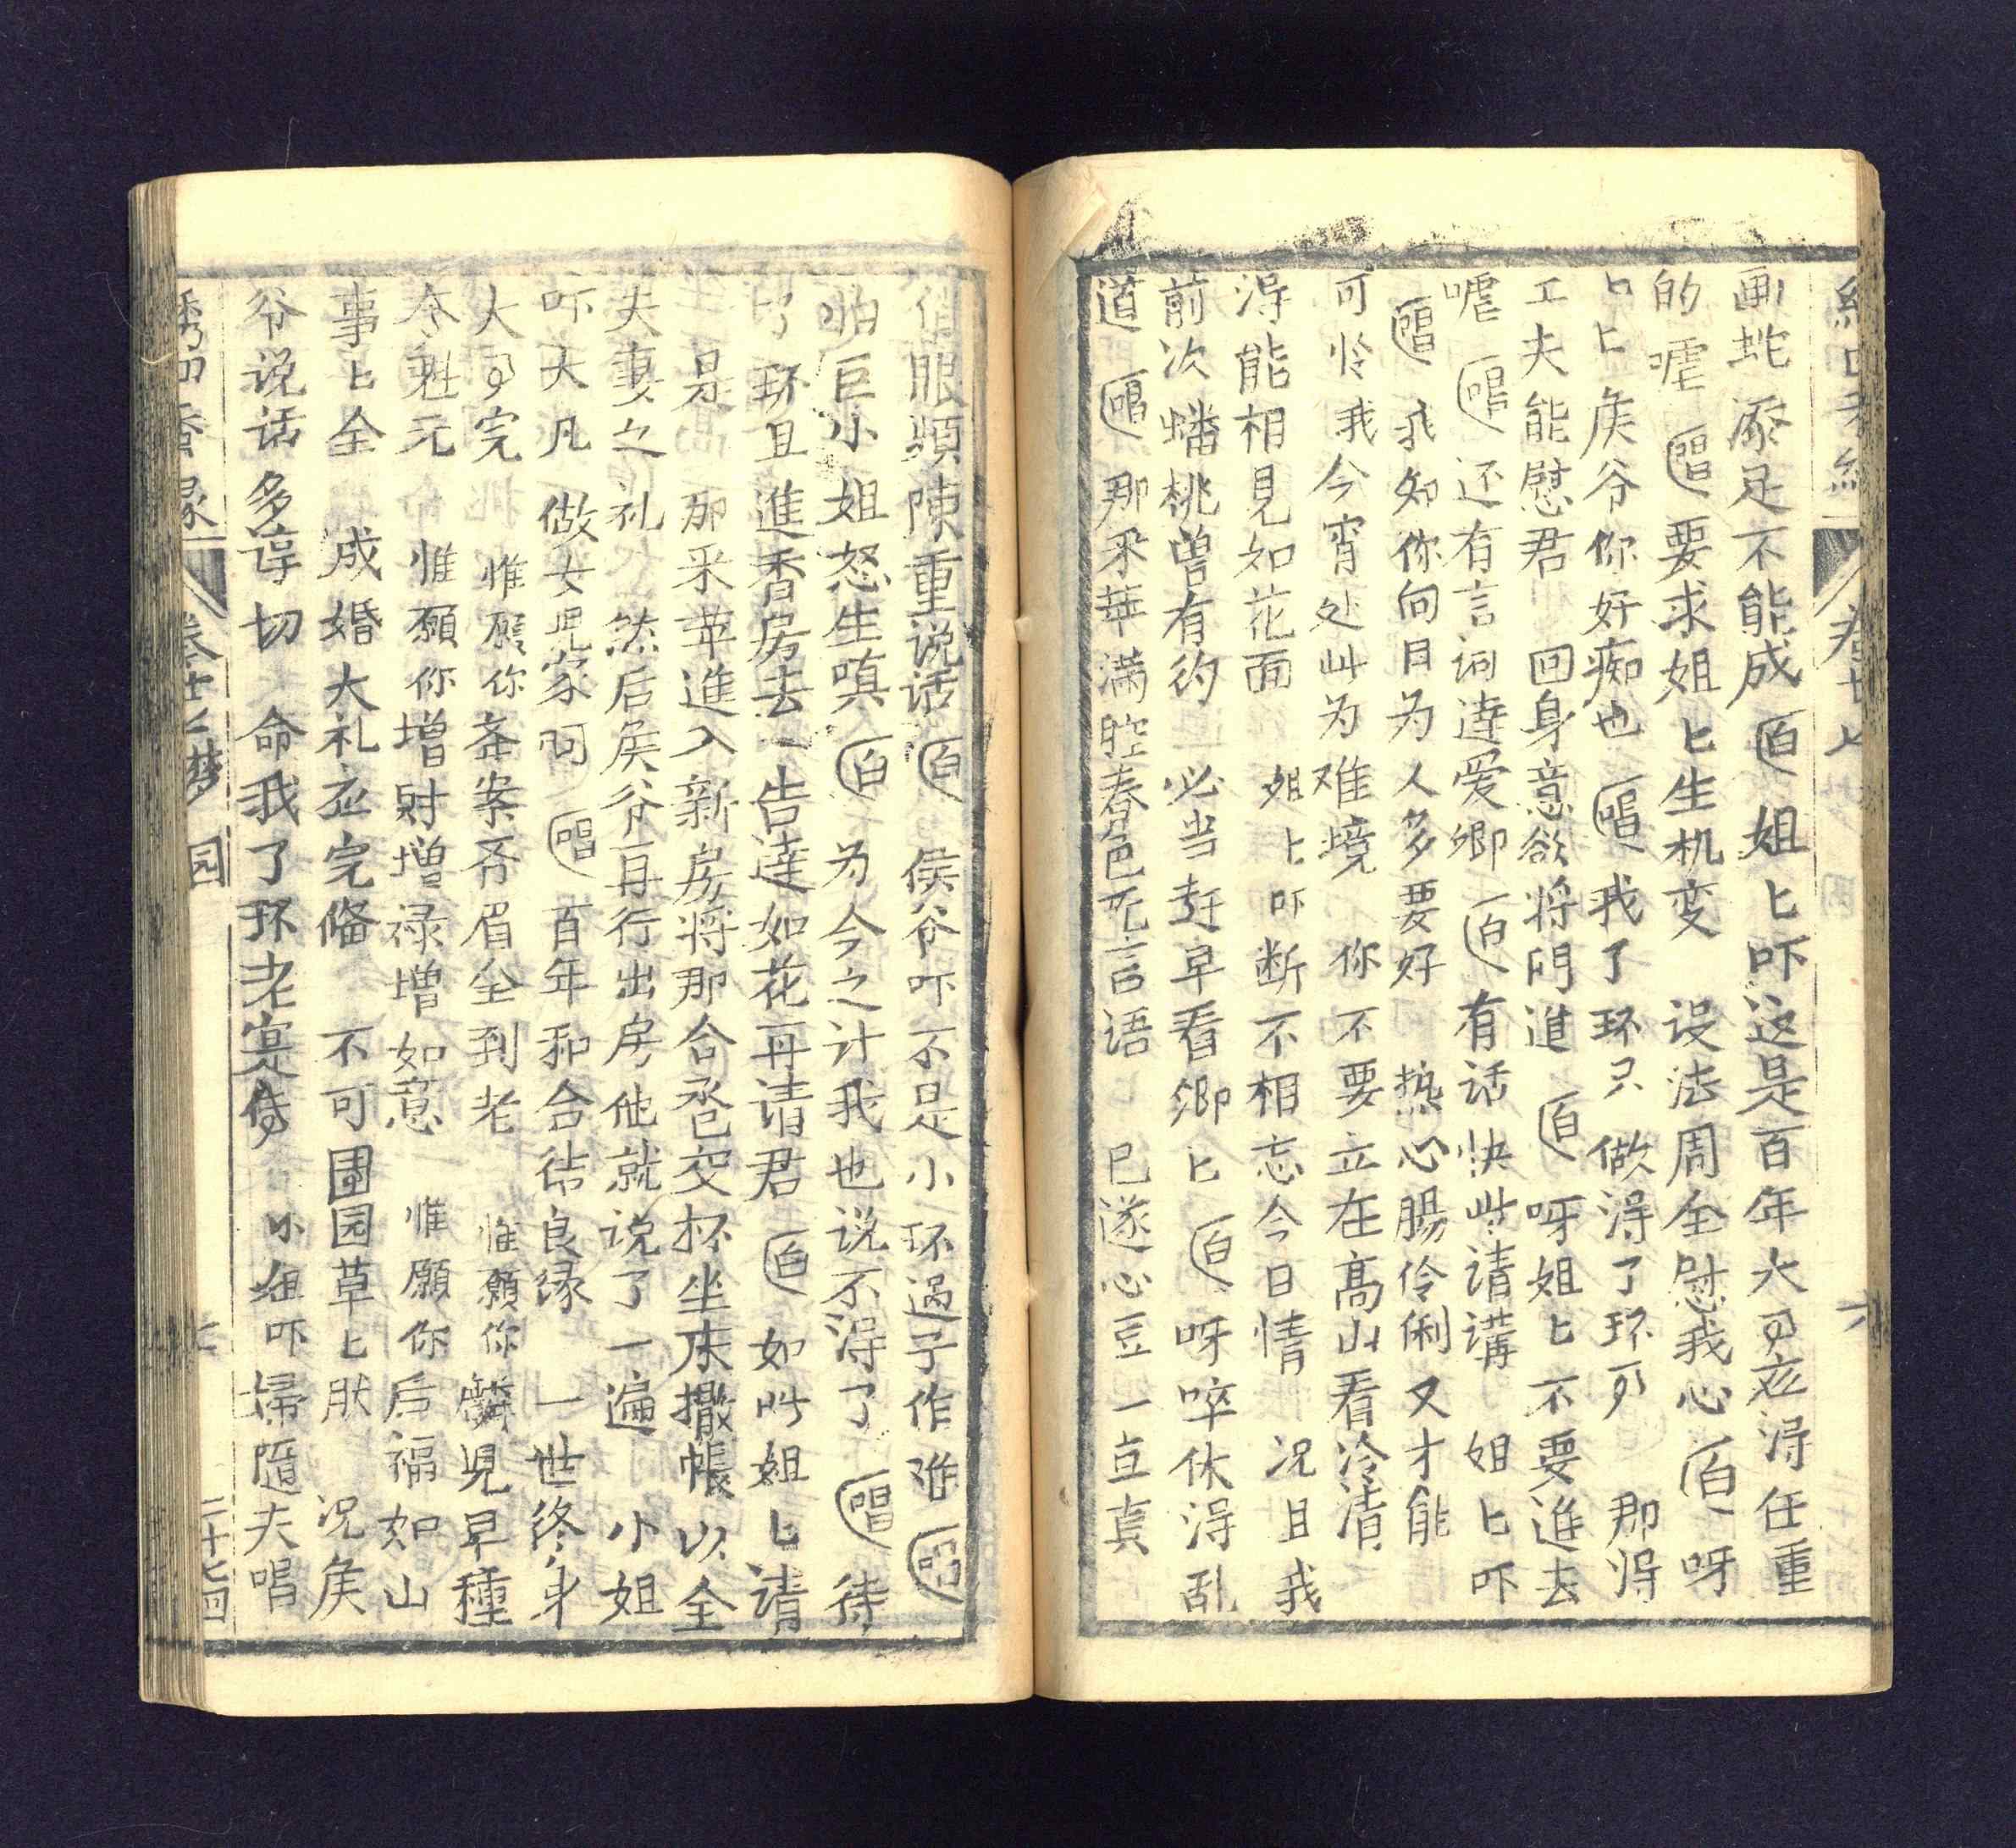 画蛇添足不能成 白 姐匕吓这是百年大事应得任重
的嚯 唱 要求姐匕生机变 设法周全慰我心 白 呀
匕侯爷你好痴也 唱 我了环只做得了环事 那得
工夫能慰君 回身意欲将门進 白 呀姐匕不要進去
嚯 唱 还有言词達爱卿 白 有话快些请講 姐匕吓
唱 我知你向日为人多要好 热心腸伶俐又才能
可怜我今宵处此为难境 你不要立在高山看冷清
得能相見如花面 姐匕吓断不相忘今日情 况且我
前次蟠桃曽有约 必当赶早看卿匕 白 呀啐休得乱
道 唱 那采苹满腔春色无言语 已遂心豆一立真
眼頭陳重说话 白 侯爷吓不是小环過于作难 唱
怕巨小姐怒生嗔 白 为今之计我也说不得了 唱 待
了环且進香房去 一告達如花再请君 白 如此姐匕請
是 那采苹進入新房将那合卺交杯坐床撒帳以全
夫妻之礼 然后侯爷再行出房他就说了一遍 小姐
吓大凡做女児家呵 唱 百年和合结良缘 一世终身
大事完 惟願你斉案齐眉全到老 惟願你麟児早種
令魁元 惟願你増財増禄増如意 惟願你后福如山
事匕全 成婚大礼应完俻 不可囯园草匕肰 况侯
爷说话多谆切 命我了环老寔傳 小姐吓婦隨夫唱
绣四香缘 卷廿七 梦园 七 二十七回